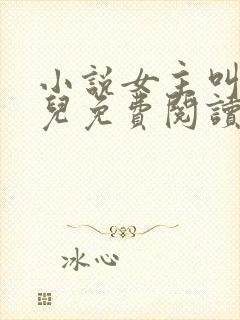 小說女主叫
兒免費閱讀
冰心